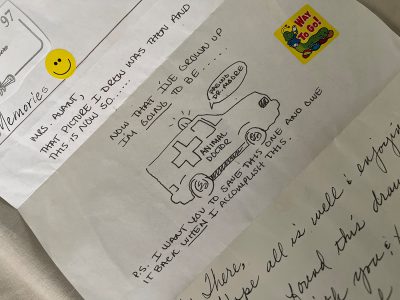 97
Memories
MRS. AVANT,
THAT PICTURE I DREW WAS THEN AND
THIS IS NOW SO.....
WAY TO GO!
NOW THAT I'VE GROWN UP
I'M GOING TO BE......
PAGING DR. MOORE
ANIMAL
DOCTOR
P.S. I WANT YOU TO SAVE THIS ONE AND GIVE
IT BACK WHEN I ACCOMPLISH THIS..
Hi There,
Hope all is well & enjoying
found this draw
you &